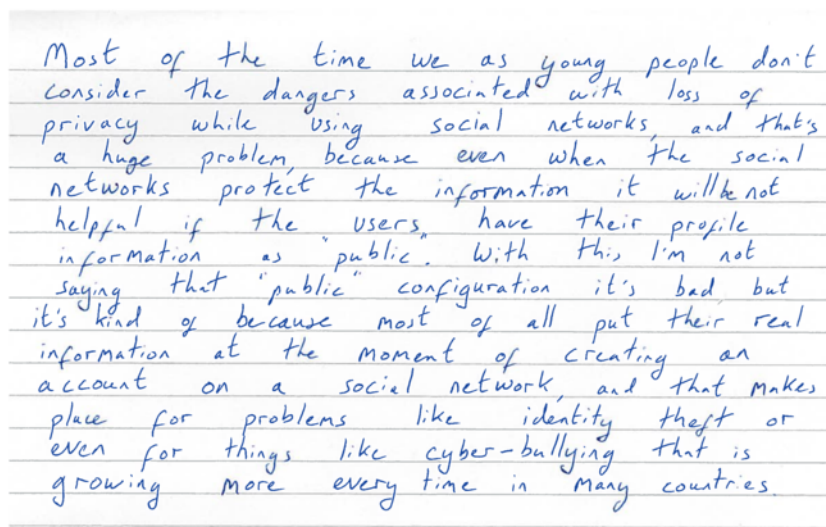 Most of the time we as young people don't
consider the dangers associated with loss of
privacy while using social networks, and that's
a huge problem, because even when the social
networks protect the information it will be not
helpful if the users have their profile
information as "public". With this I'm not
saying that "public" configuration it's bad, but
it's kind of because most of all put their real
information at the moment of creating an
account on a social network, and that makes
place for problems like identity theft or
even for things like cyber-bullying that is
growing more every time in many countries.